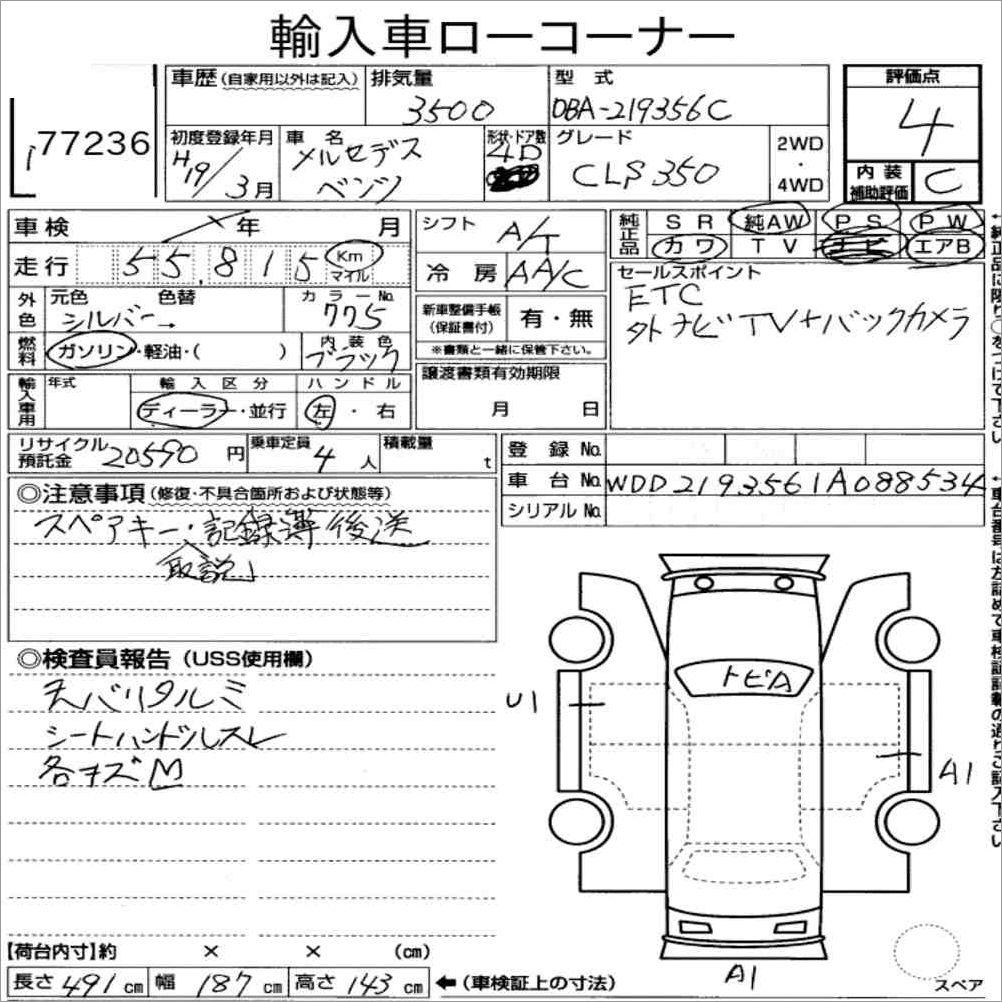 輸入車ローコーナー
77236
車歴(自家用以外は記入)
排気量
3500
型式
DBA-219356C
評価点
4
初度登録年月
H19/3月
車名
メルセデス
ベンツ
形状・ドア数
4D
グレード
CLS350
2WD
・
4WD
内装
補助評価
C
車検
年
月
走行
55,815
Km
マイル
シフト
A/T
冷房
AA/C
純正品
SR
純AW
PS
PW
カワ
TV
ナビ
エアB
セールスポイント
ETC
外ナビTV+バックカメラ
外色
元色
色替
シルバー→
カラーNo.
775
燃料
ガソリン・軽油・( )
内装色
ブラック
新車整備手帳
(保証書付)
有・無
※書類と一緒に保管下さい。
輸入車用
年式
輸入区分
ディーラー・並行
ハンドル
左・右
譲渡書類有効期限
月
日
リサイクル
預託金
20590円
乗車定員
4人
積載量
t
登録No.
車台No.
WDD2193561A088534
シリアルNo.
◎注意事項(修復・不具合箇所および状態等)
スペアキー・記録簿後送
取説
◎検査員報告(USS使用欄)
天バリタルミ
シートハンドルスレ
各キズM
トビA
U1
A1
A1
スペア
【荷台内寸】約 × × (cm)
長さ491cm 幅187cm 高さ143cm ←(車検証上の寸法)